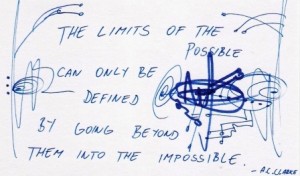 THE LIMITS OF THE
POSSIBLE
CAN ONLY BE
DEFINED
BY GOING BEYOND
THEM INTO THE IMPOSSIBLE.
- A.C. CLARKE